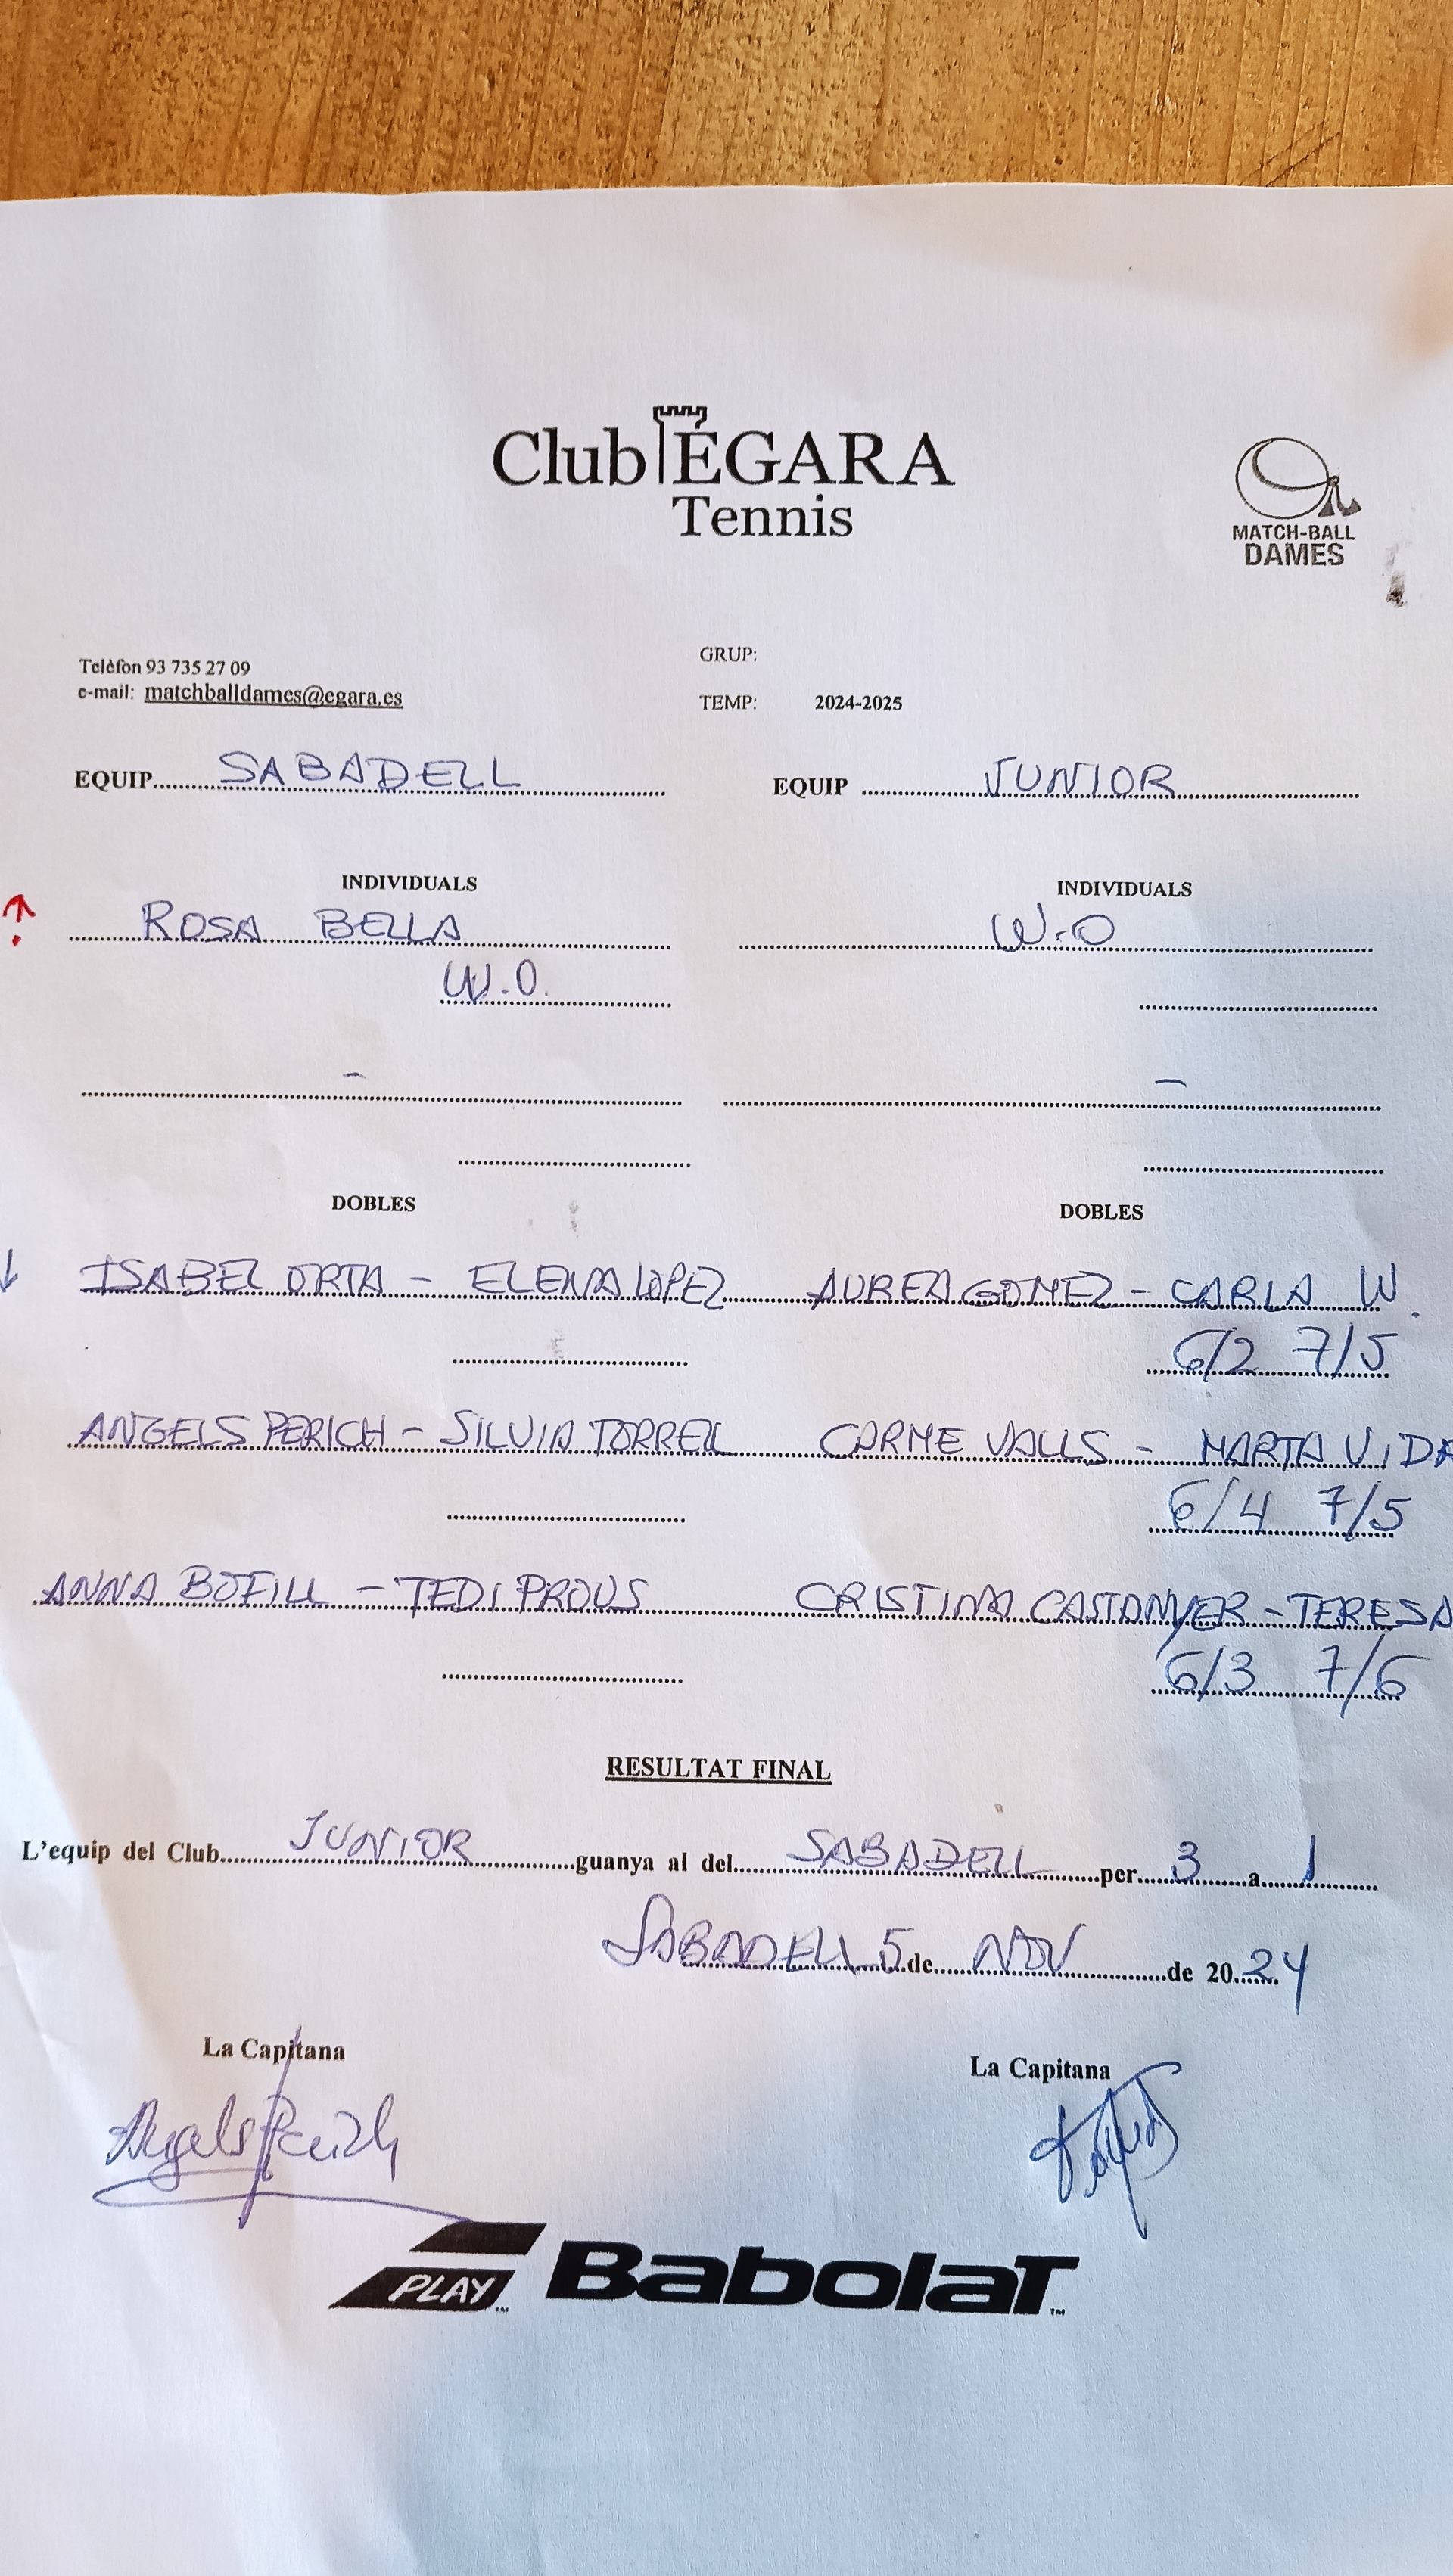 Club ÉGARA
Tennis
MATCH-BALL
DAMES
Telèfon 93 735 27 09
e-mail: matchballdames@egara.es
GRUP:
TEMP: 2024-2025
EQUIP SABADELL
EQUIP JUNIOR
INDIVIDUALS
INDIVIDUALS
ROSA BELLA
W.O
W.O.
-
-
DOBLES
DOBLES
ISABEL ORTA - ELENA LOPEZ
AUREA GOMEZ - CARLA W.
6/2 7/5
ANGELS PERICH - SILVIA TORRELL
CARME VALLS - MARTA VIDA
6/4 7/5
ANNA BOFILL - TEDI PROUS
CRISTINA CASTANYER - TERESA
6/3 7/6
RESULTAT FINAL
L'equip del Club JUNIOR guanya al del SABADELL per 3 a 1
SABADELL 5 de NOV de 2024
La Capitana
La Capitana
Angels Perich
PLAY™ BABOLAT™